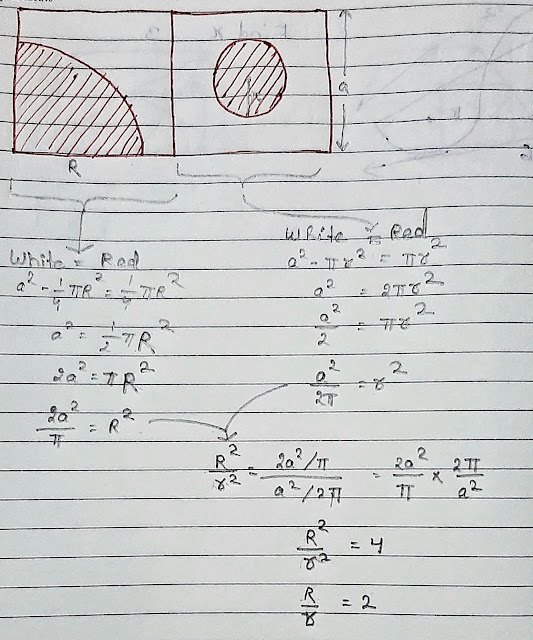 a
r
R
White = Red
a² - 1/4 πR² = 1/4 πR²
a² = 1/2 πR²
2a² = πR²
2a²/π = R²
White = Red
a² - πr² = πr²
a² = 2πr²
a²/2 = πr²
a²/2π = r²
R²/r² = (2a²/π)/(a²/2π) = 2a²/π × 2π/a²
R²/r² = 4
R/r = 2